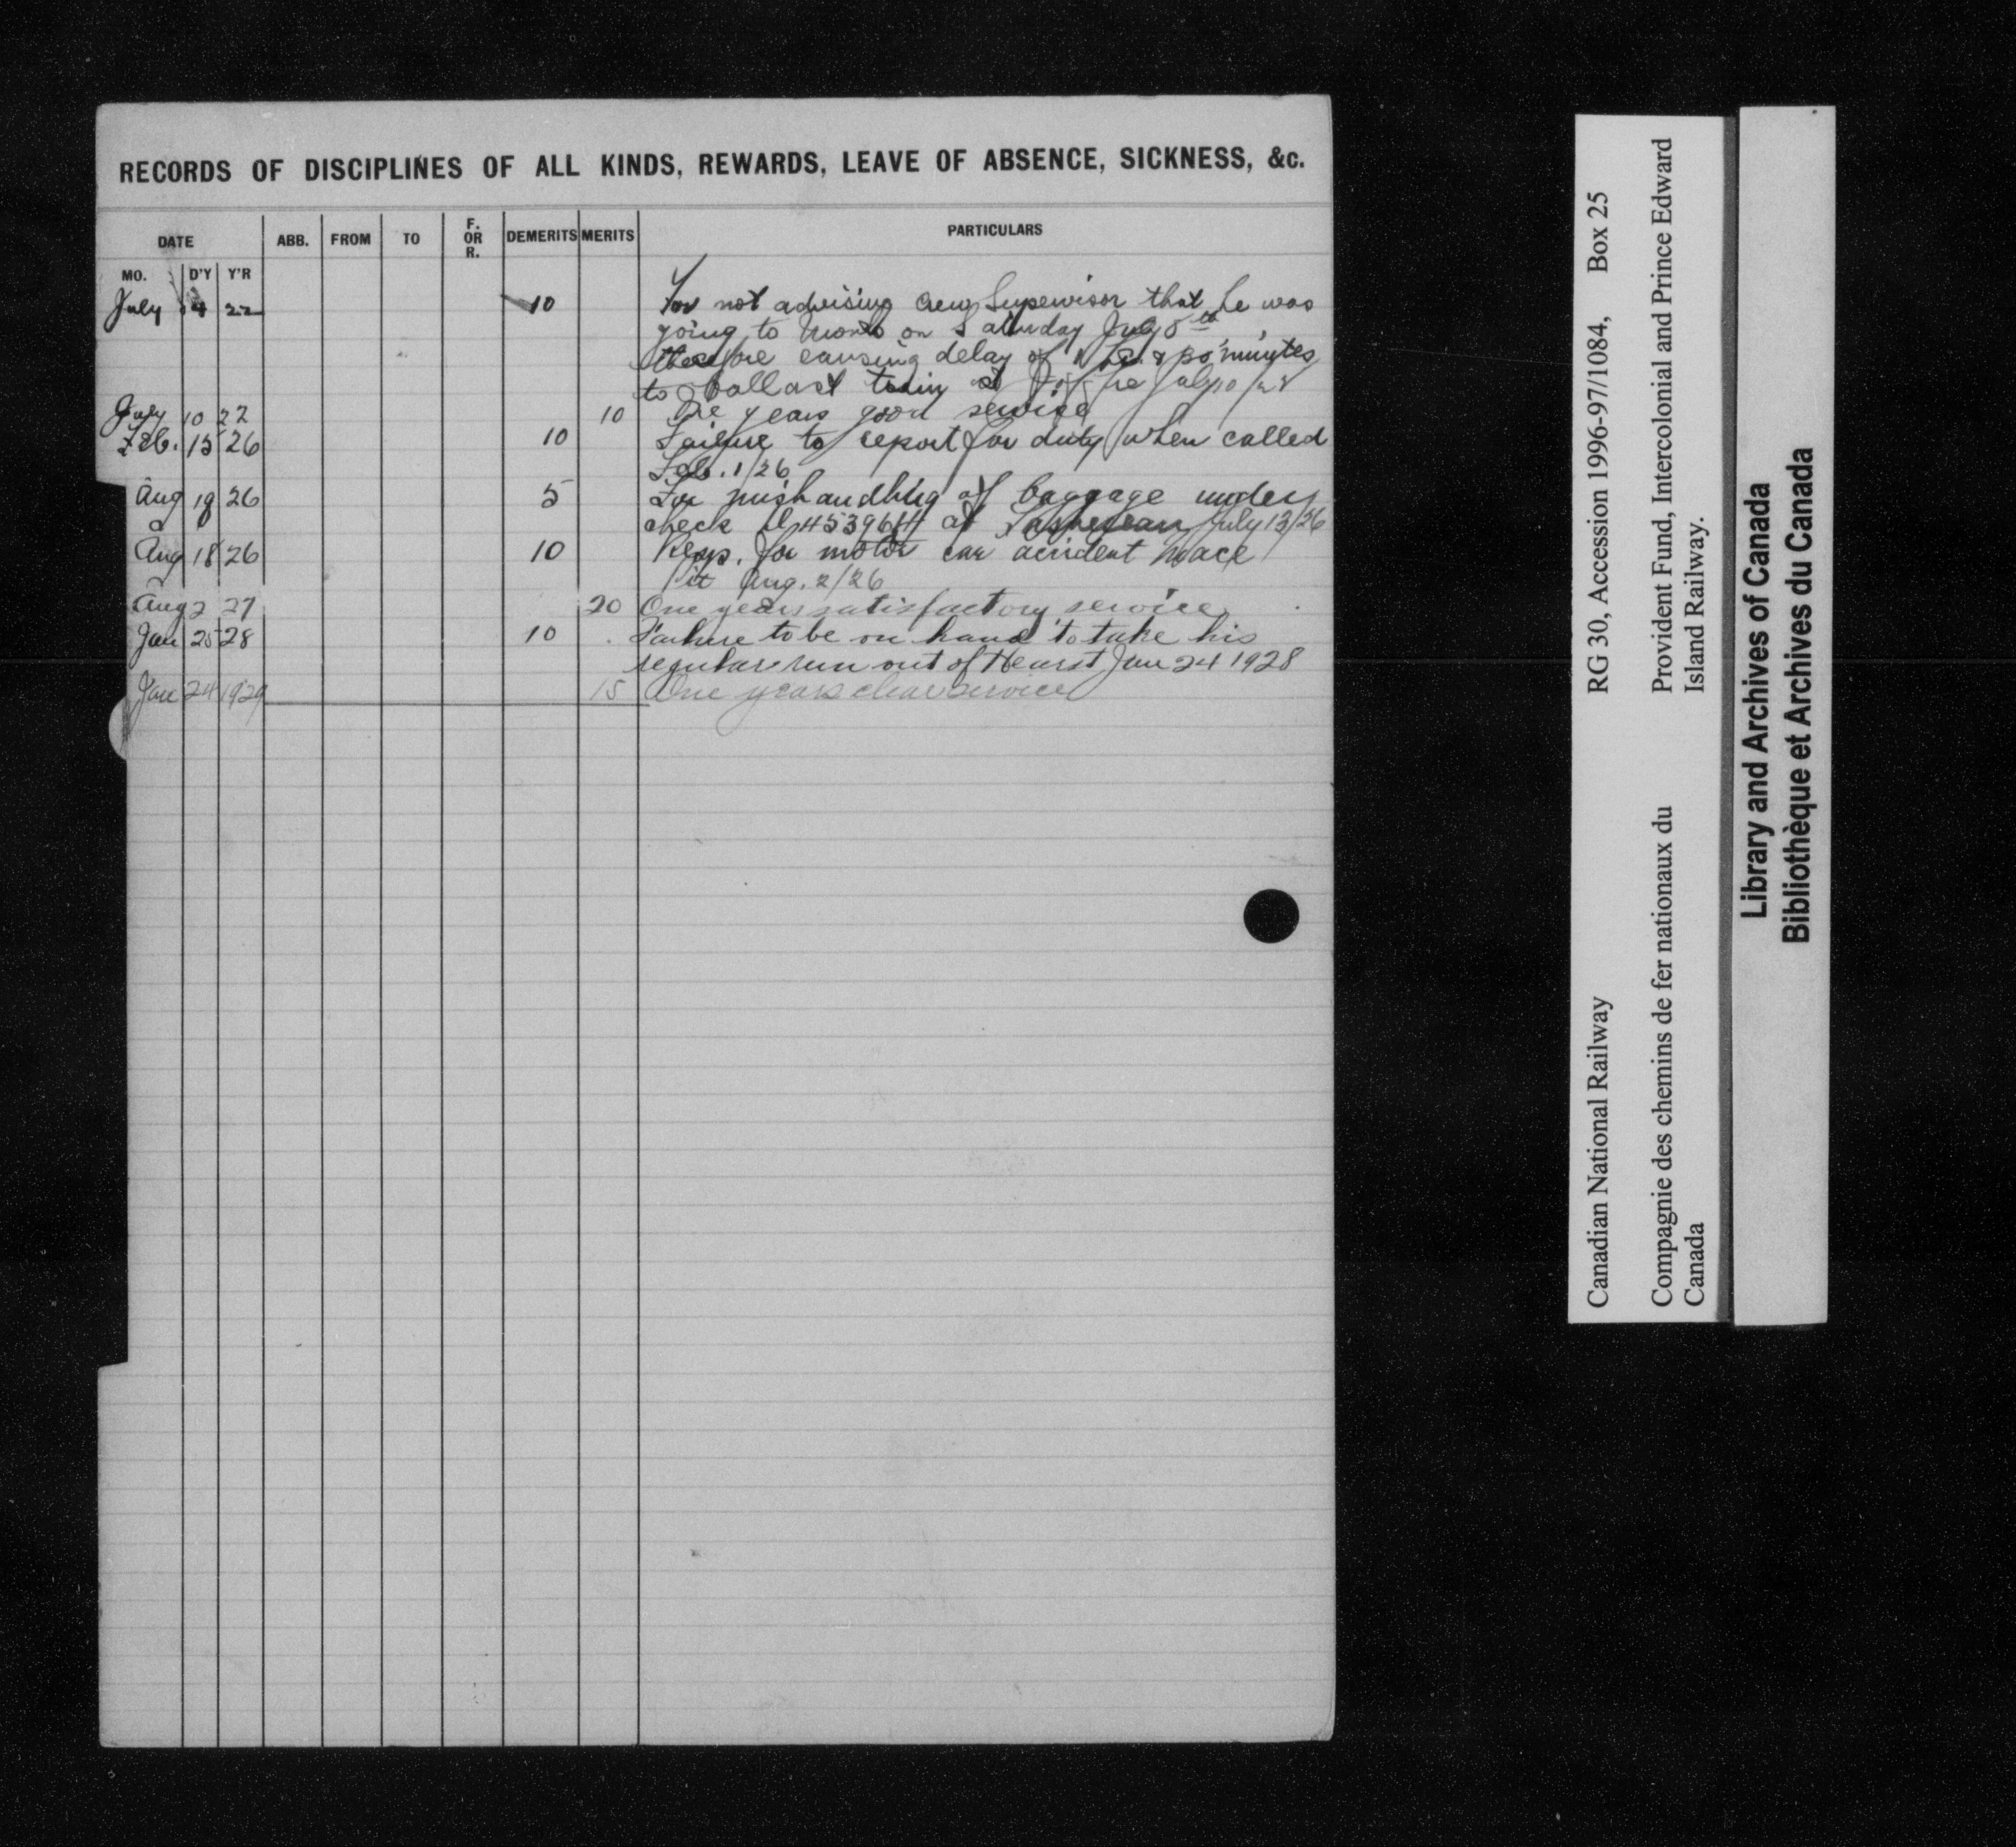 RECORDS OF DISCIPLINES OF ALL KINDS, REWARDS, LEAVE OF ABSENCE, SICKNESS, &c.
DATE ABB. FROM TO F. OR R. DEMERITS MERITS PARTICULARS
MO. D'Y Y'R
July 4 22 10 For not advising Crew Supervisor that he was
going to on Saturday July 8th,
therefore causing delay of 1 hr. & 30 minutes
to ballast train at July 10/22
July 10 22 10 One years good service
Feb. 15 26 10 Failure to report for duty when called
Feb. 1/26
Aug 18 26 5 For mishandling of baggage under
check at Taschereau July 13/26
Aug 18 26 10 Resp. for motor car accident Mace
Pit Aug. 2/26
Aug 2 27 20 One years satisfactory service
Jan 25 28 10 Failure to be on hand to take his
regular run out of Hearst Jan 24 1928
Jan 24 1929 15 One years clear service
Canadian National Railway RG 30, Accession 1996-97/1084, Box 25
Compagnie des chemins de fer nationaux du Provident Fund, Intercolonial and Prince Edward
Canada Island Railway.
Library and Archives of Canada
Bibliothèque et Archives du Canada